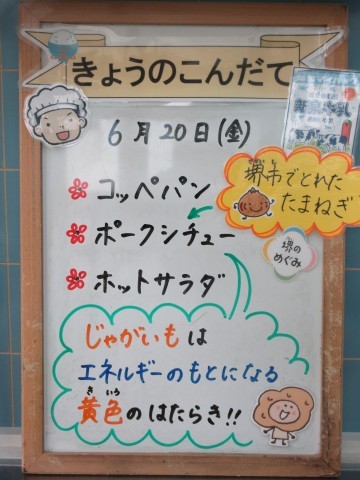 きょうのこんだて
6月20日(金)
コッペパン
ポークシチュー
ホットサラダ
堺市でとれた
たまねぎ
堺の
めぐみ
じゃがいもは
エネルギーのもとになる
きいろ
黄色のはたらき!!